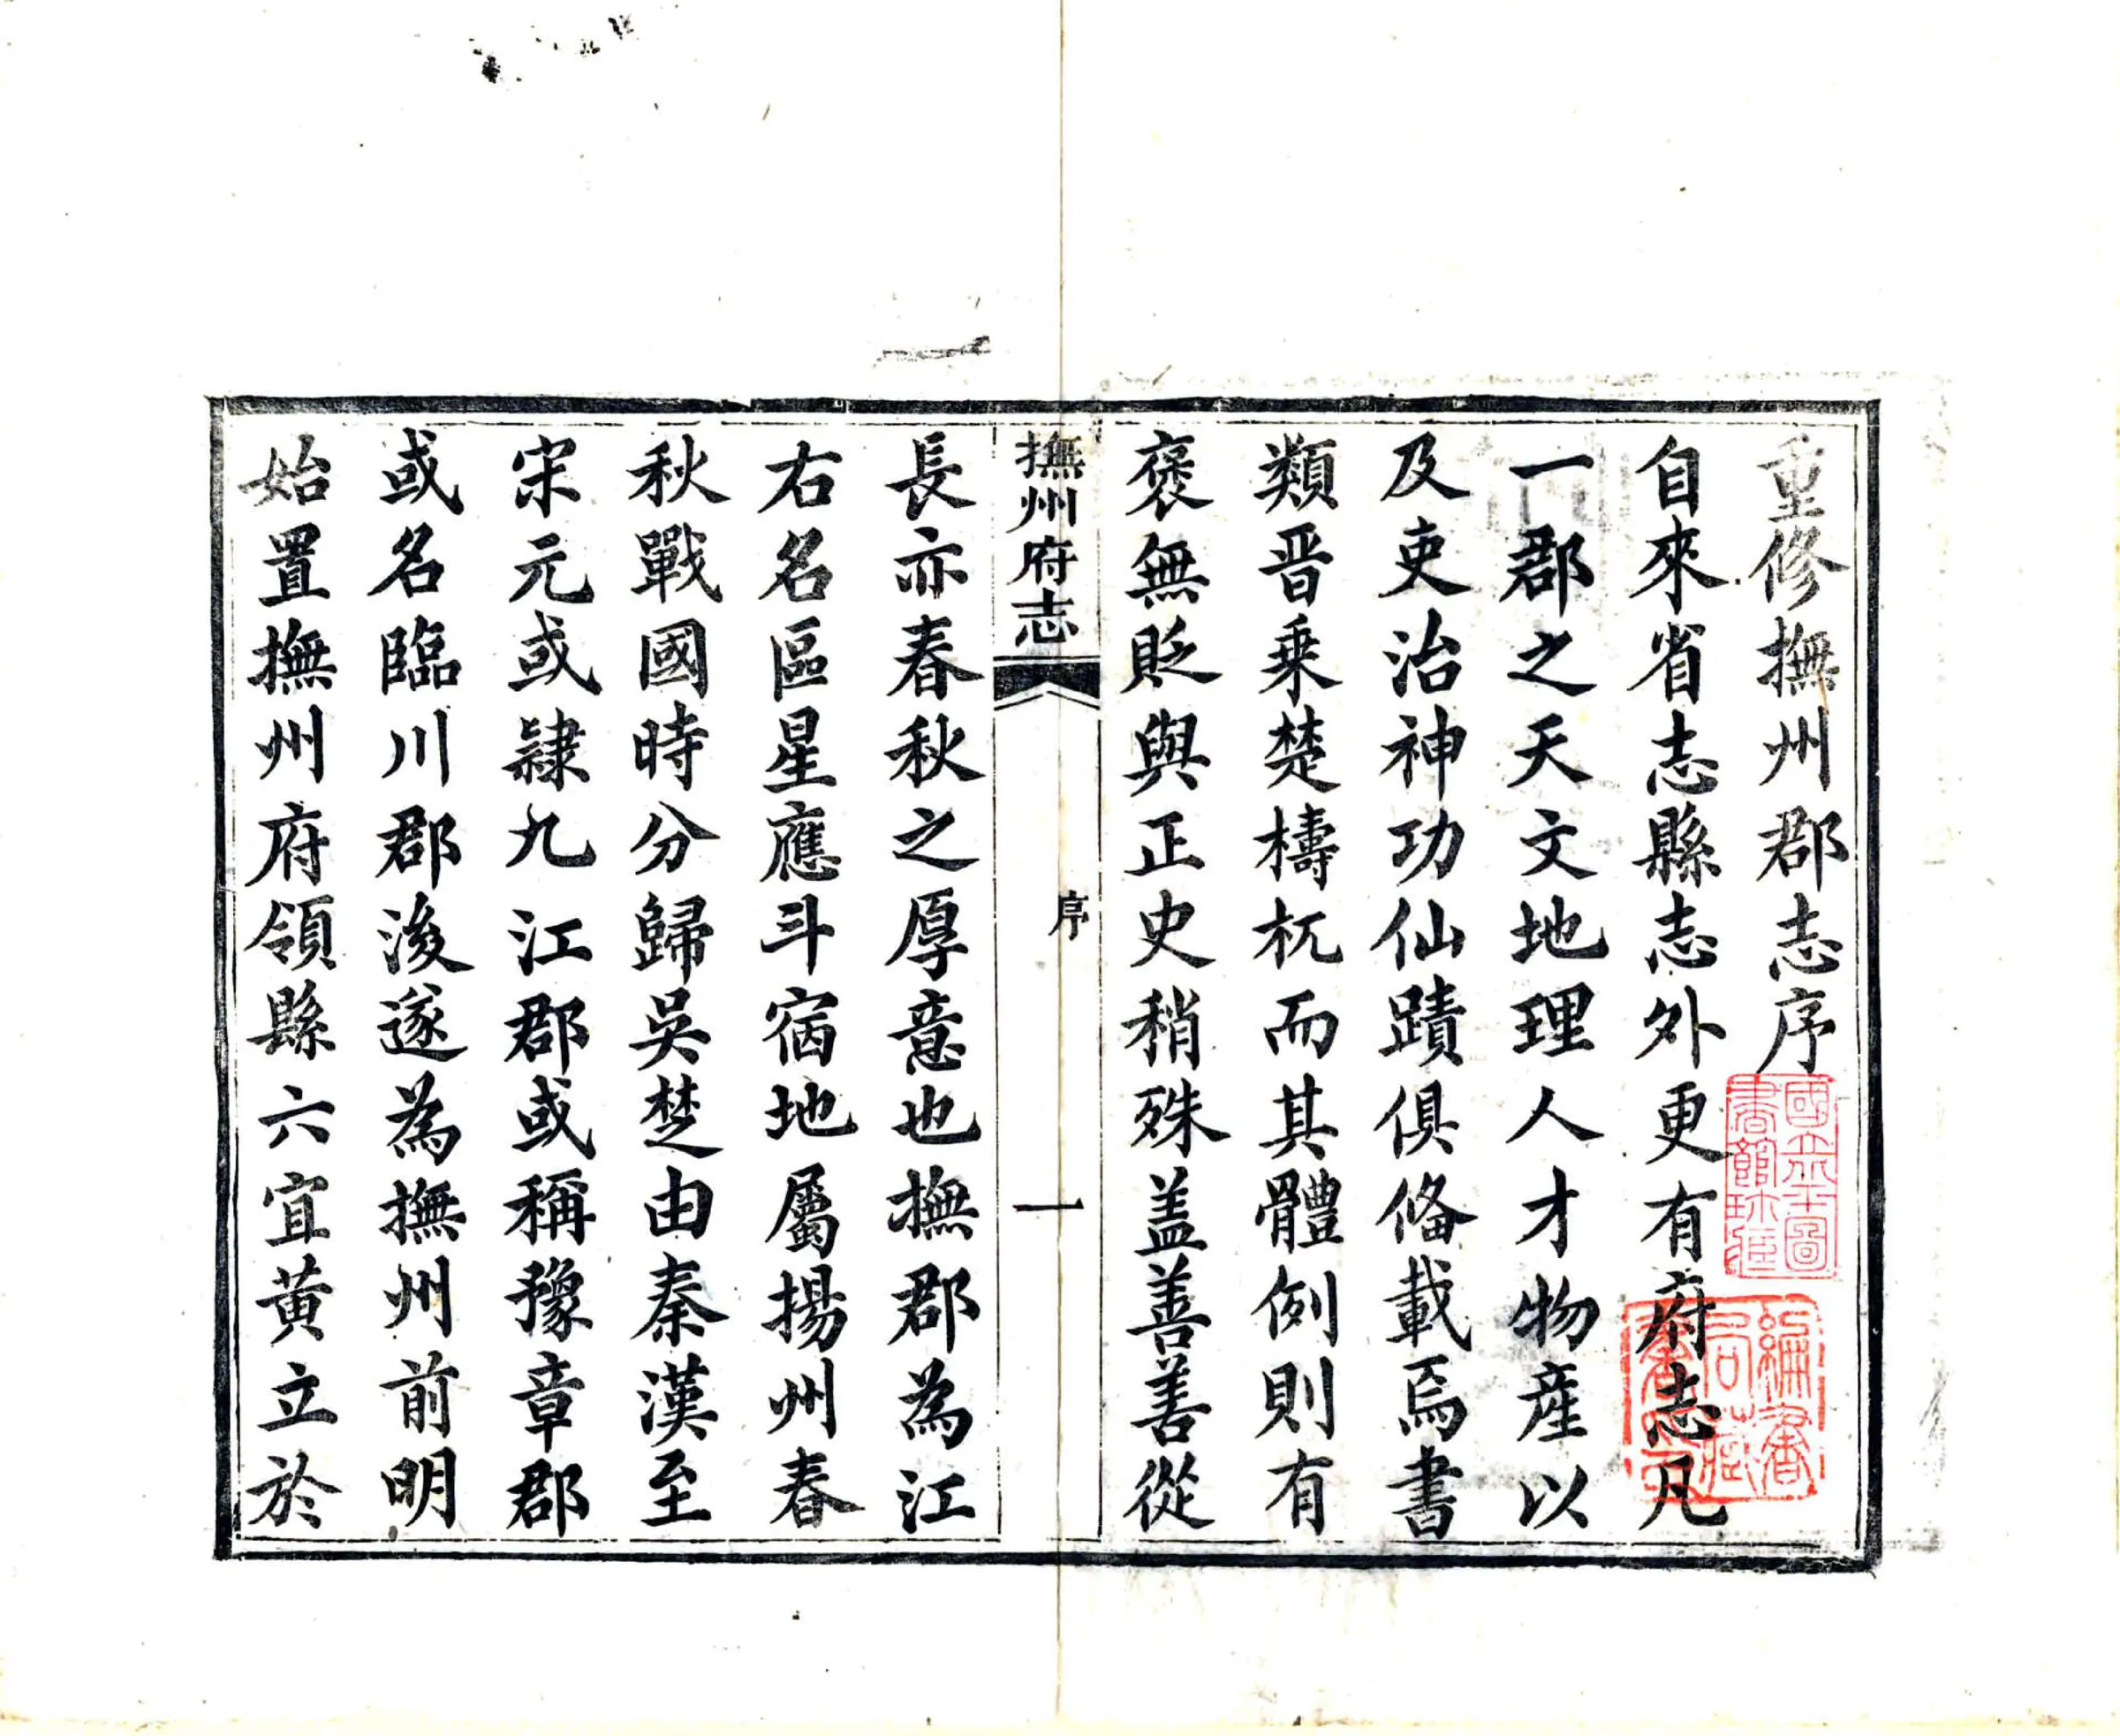 重修撫州郡志序
自來省志縣志外更有府志凡
一郡之天文地理人才物產以
及吏治神功仙蹟俱俻載焉書
類晋乗楚檮杌而其體例則有
褒無貶與正史稍殊盖善善從
撫州府志
序
一
長亦春秋之厚意也撫郡為江
右名區星應斗宿地屬揚州春
秋戰國時分歸吳楚由秦漢至
宋元或隷九江郡或稱豫章郡
或名臨川郡後遂為撫州前明
始置撫州府領縣六宜黄立於
國立北平圖
書館珍藏